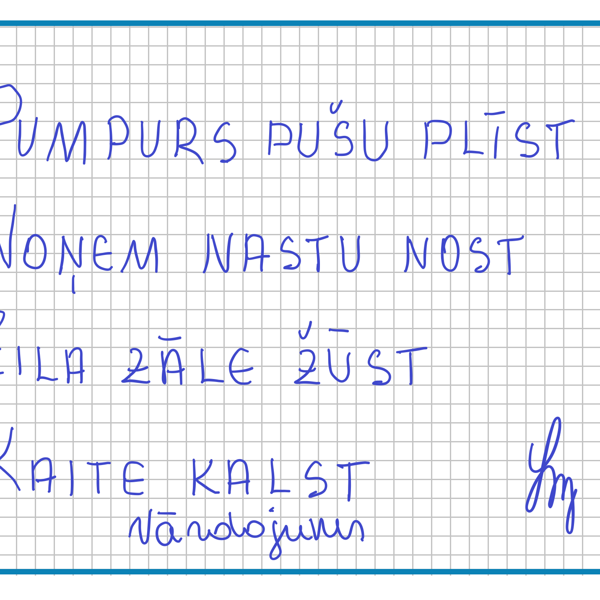 PUMPURS PUŠU PLĪST
NOŅEM NASTU NOST
ZILA ZĀLE ŽŪST
KAITE KALST
vārdojums